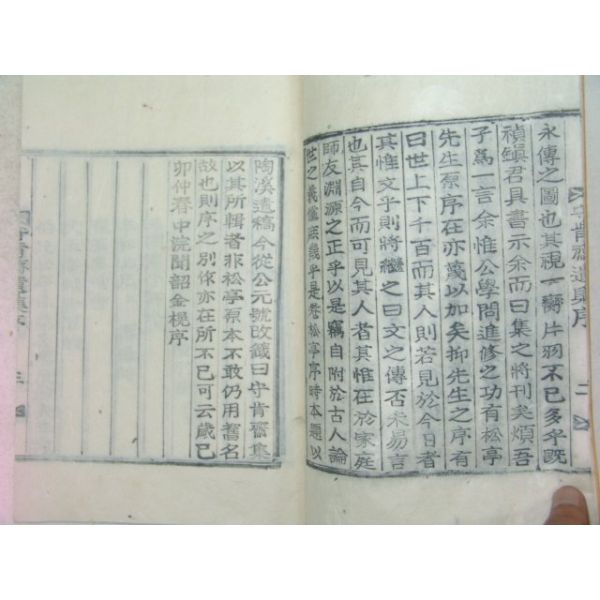 永傳之圖也其視一臠片羽不已多乎旣
禎鎭君具書示余而曰集之將刊矣煩吾
子爲一言余惟公學問進修之功有松亭
先生原序在亦蔑以加矣抑先生之序有
曰世上下千百而其人則若見於今日者
其惟文乎則將繼之曰文之傳否未易言
也其自今而可見其人者其惟在於家庭
師友淵源之正乎以是竊自附於古人論
世之義儻或幾乎是卷松亭序時本題以
守肯齋遺集序
二
陶溪遺稿今從公元號改籤曰守肯齋集
以其所輯者非松亭原本不敢仍用舊名
故也則序之別作亦在所不已可云歲己
卯仲春中浣聞韶金榥序